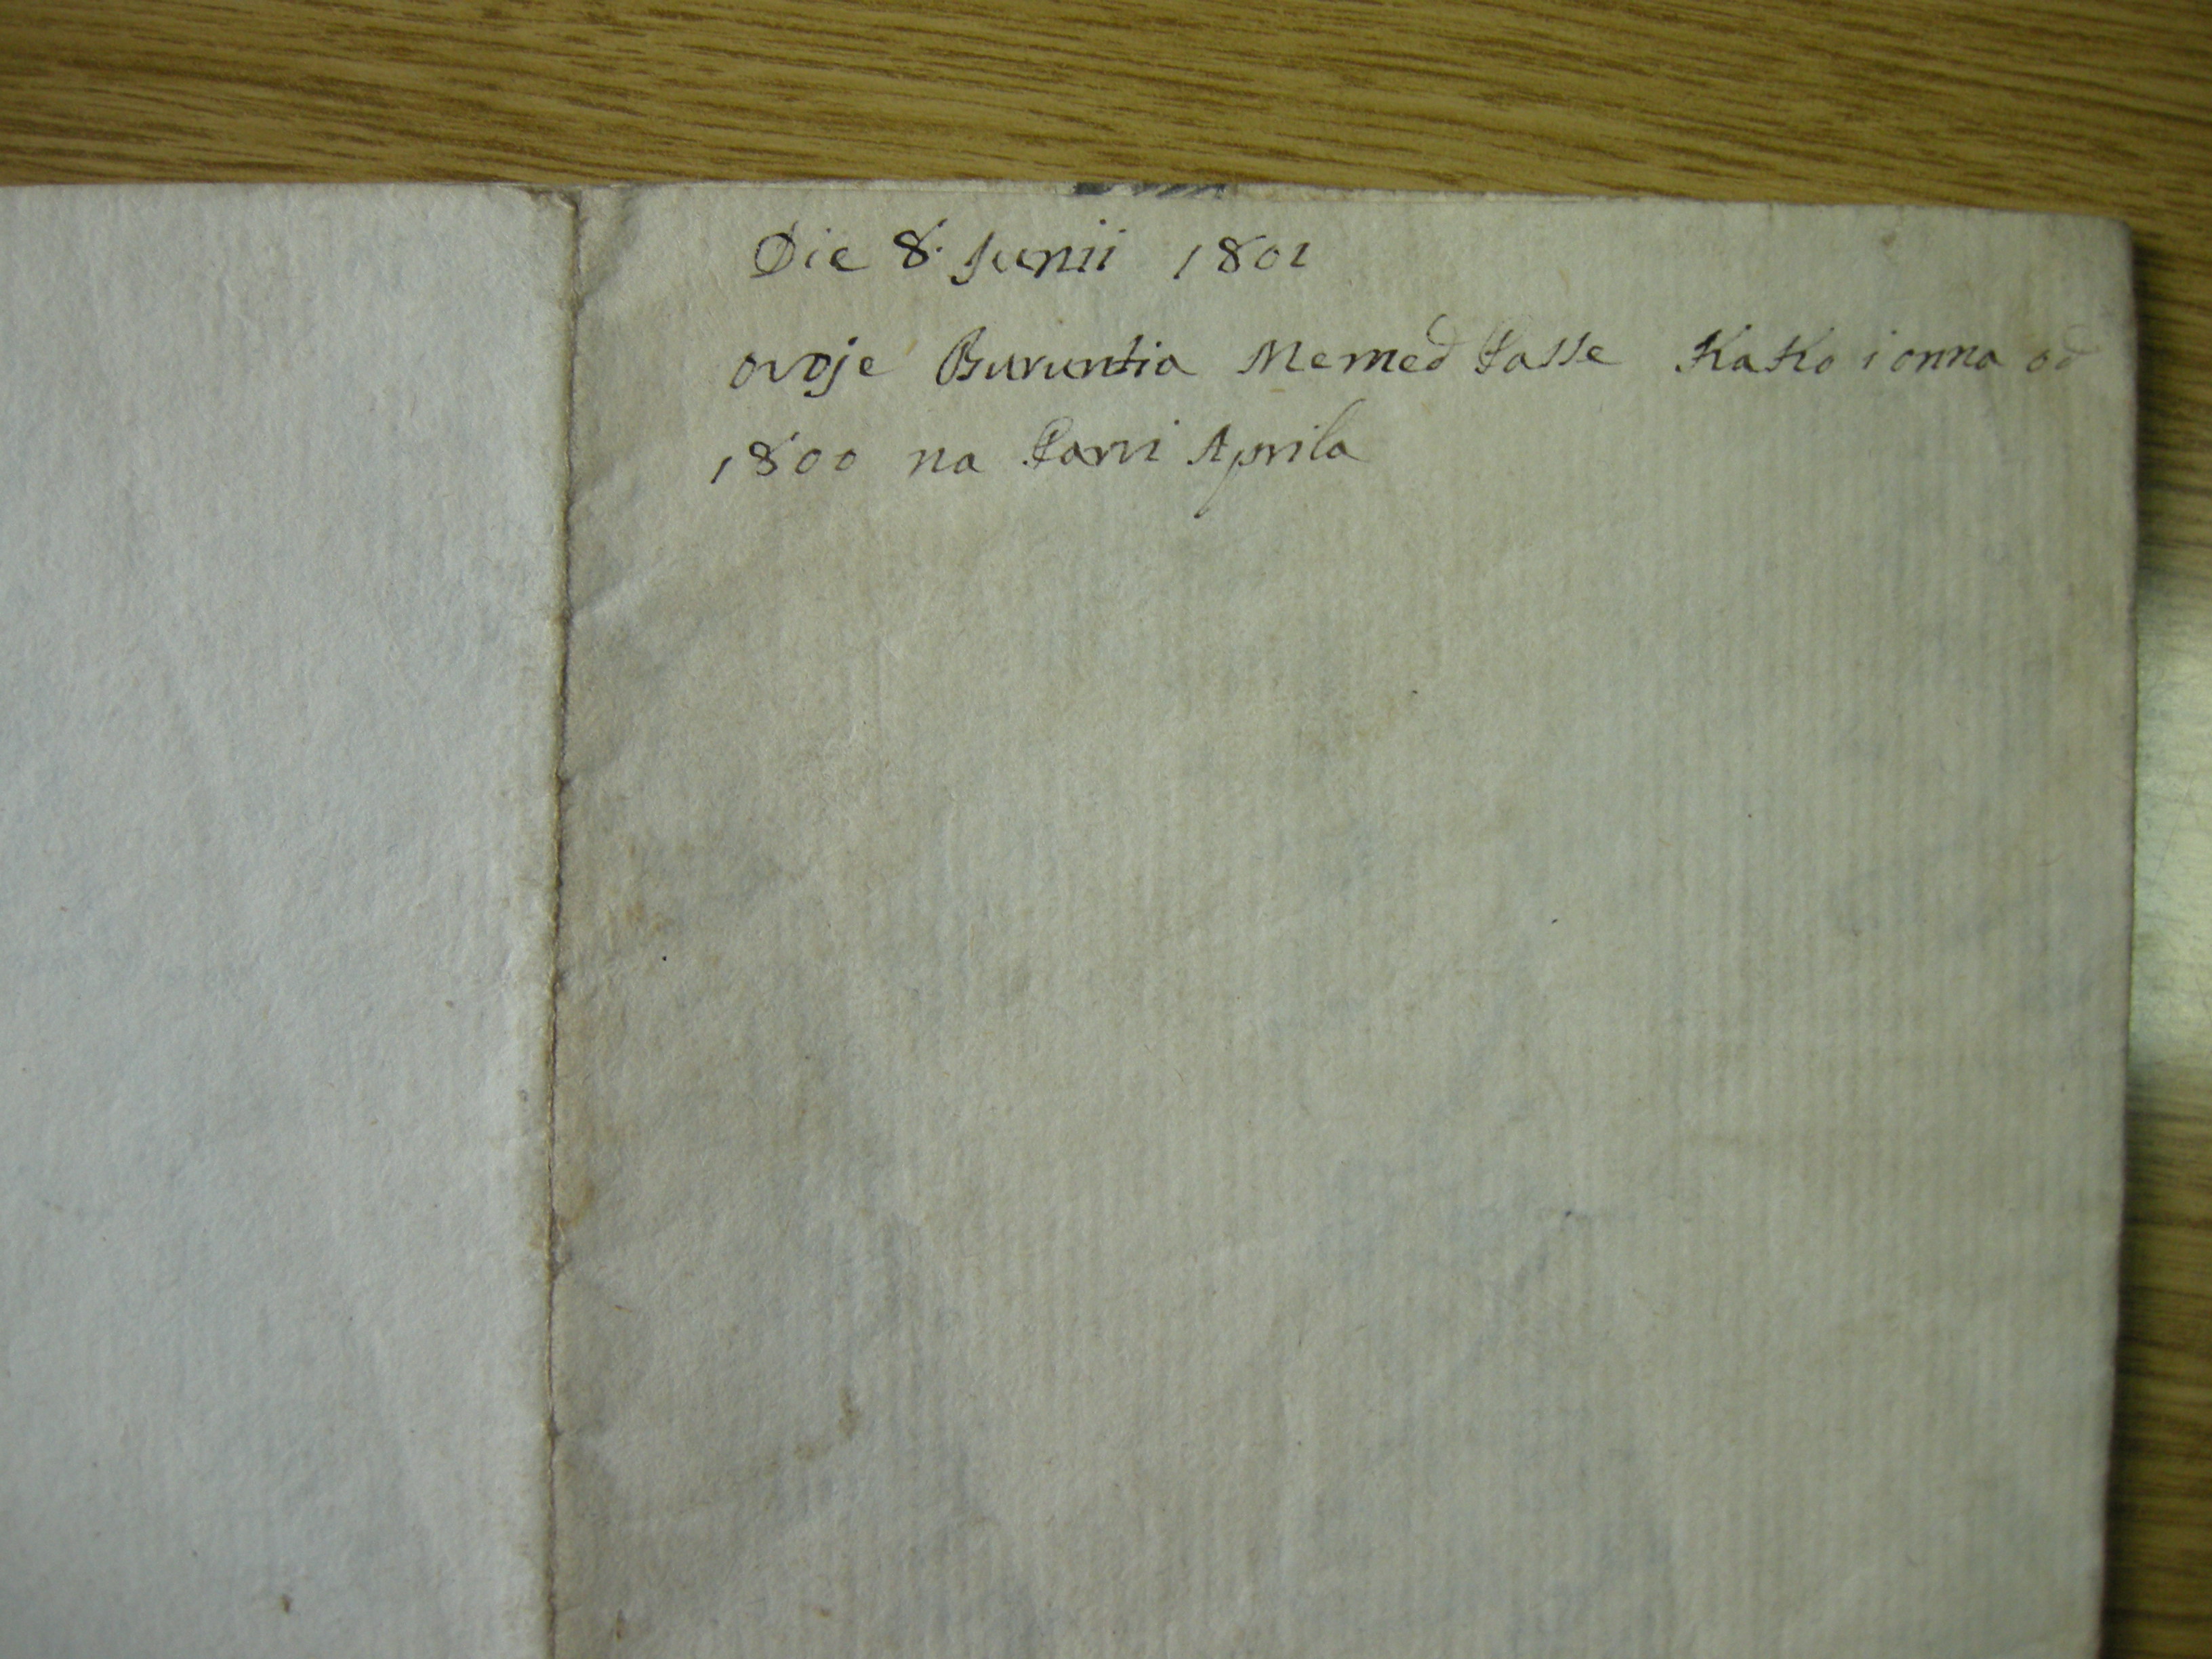 Die 8. Junii 1801
ovoje Buruntia Memed Passe Kako i onna od
1800 na Parvi Aprila